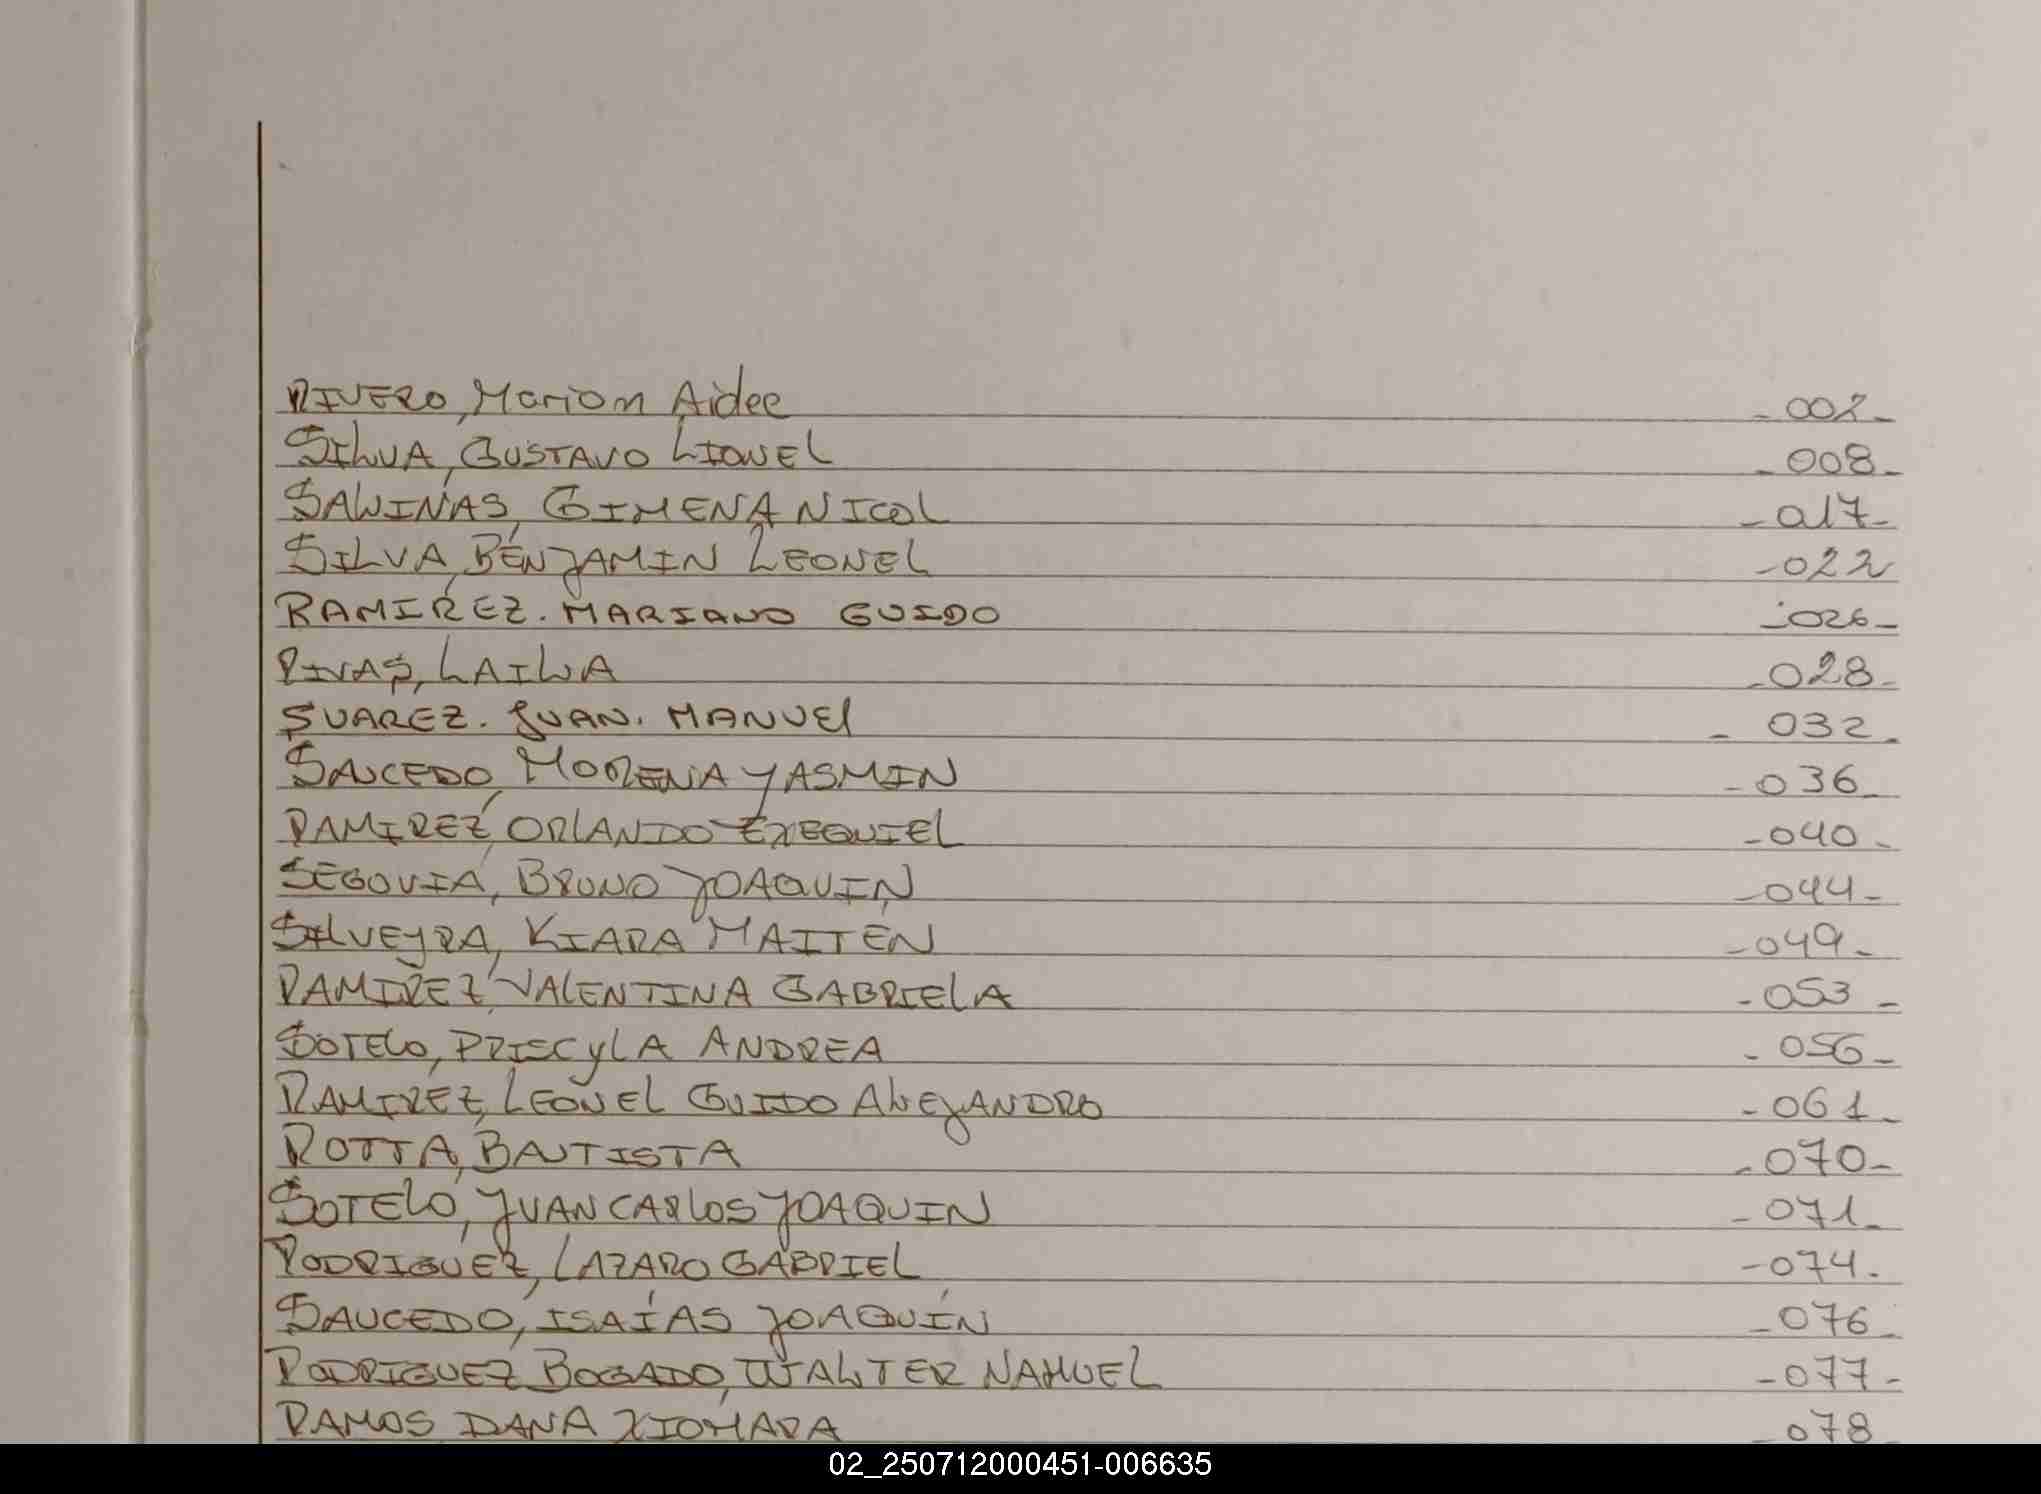 RIVERO, Mariam Aidee -002-
SILVA, GUSTAVO LIONEL -008-
SALINAS, GIMENA NICOL -017-
SILVA, BENJAMIN LEONEL -022
RAMIREZ. MARIANO GUIDO -026-
RIVAS, LAILA -028-
SUAREZ. JUAN. MANUEl - 032 -
SAUCEDO, MORENA YASMIN -036-
RAMIREZ, ORLANDO EXEQUIEL -040-
SEGOVIA, BRUNO JOAQUIN -044-
SILVEYRA, KIARA MAITEN -049-
RAMIREZ, VALENTINA GABRIELA -053-
SOTELO, PRISCYLA ANDREA -056-
RAMIREZ, LEONEL GUIDO ALEJANDRO -061-
ROTTA, BAUTISTA -070-
SOTELO, JUAN CARLOS JOAQUIN -071-
RODRIGUEZ, LAZARO GABRIEL -074-
SAUCEDO, ISAÍAS JOAQUÍN -076-
RODRIGUEZ BOGADO, WALTER NAHUEL -077-
RAMOS DANA XIOMARA -078-
02_250712000451-006635